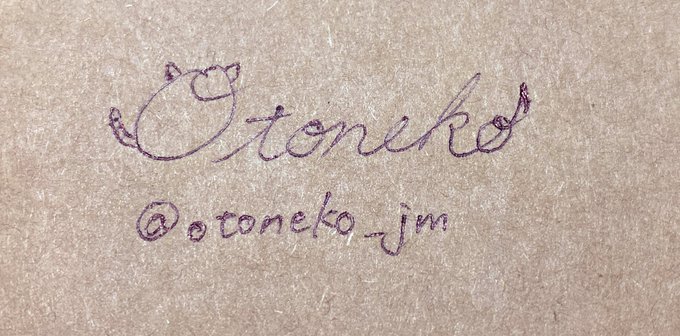 Otoneko
@otoneko_jm